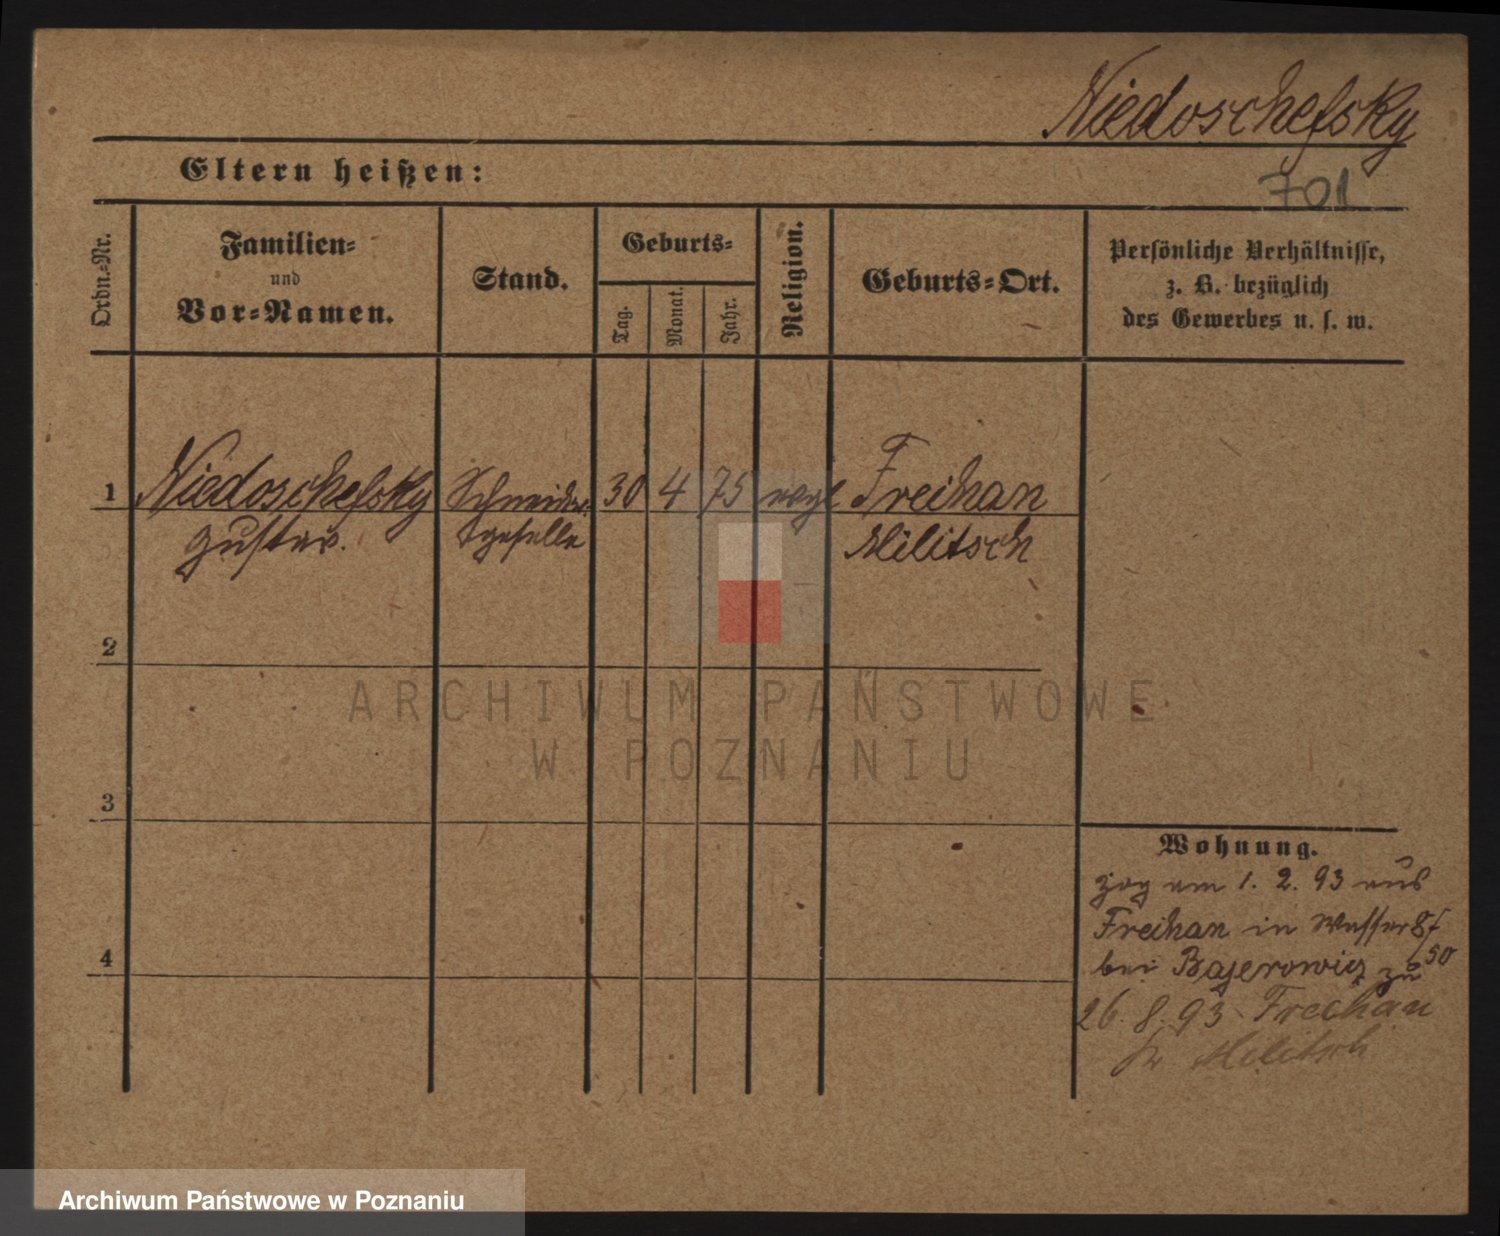 Niedoschefsky
701
Eltern heißen:
Ordn.-Nr.
Familien-
und
Vor-Namen.
Stand.
Geburts-
Tag.
Monat.
Jahr.
Religion.
Geburts-Ort.
Persönliche Verhältnisse,
z. B. bezüglich
des Gewerbes u. s. w.
1 Niedoschefsky Schneider- 30 4 75 evgl Freihan
Gustav. geselle Militsch
2
3
4
ARCHIWUM PAŃSTWOWE
W POZNANIU
Wohnung.
zog am 1. 2. 93 aus
Freihan in Wasserstr
bei Bajerowicz zu
26. 8. 93 Freihan
Kr Militsch
Archiwum Państwowe w Poznaniu